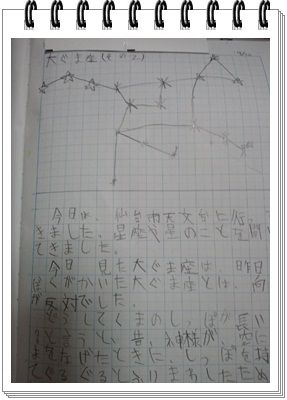 大ぐま座(その2)
今日は、仙台市天文台に行
きました。星座や星のことを聞い
てきました。
今日、見た大ぐま座は、昨日
ぼくがかいた大ぐま座とは、向
反対でした。
どうしてくまのしっぽが長い
と言うと、昔、神様が、
くまをなげたときに、しっぽを持
てぐるぐるとふりまわしたため